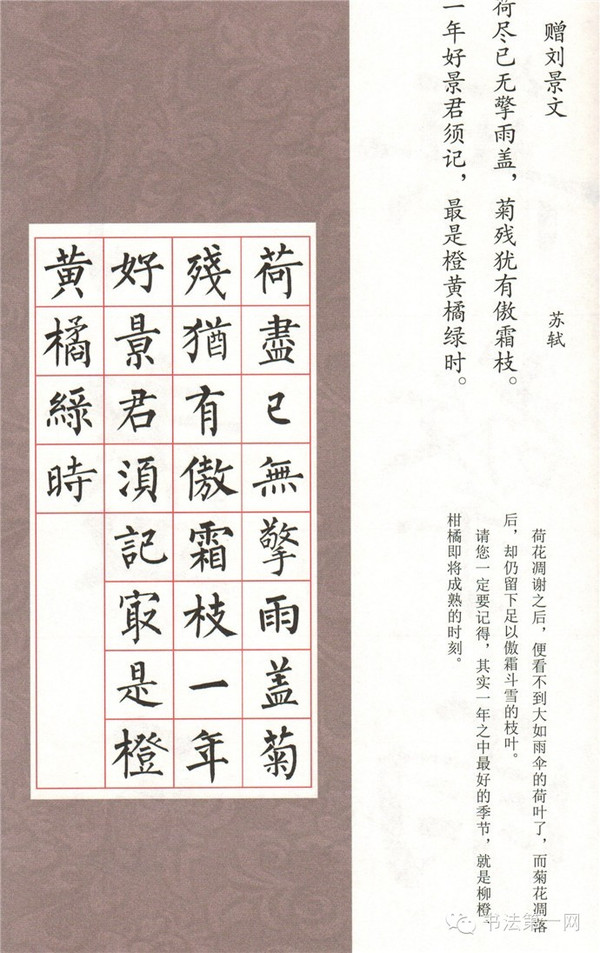 赠刘景文
苏轼
荷尽已无擎雨盖，菊残犹有傲霜枝。
一年好景君须记，最是橙黄橘绿时。
荷花凋谢之后，便看不到大如雨伞的荷叶了，而菊花凋落
后，却仍留下足以傲霜斗雪的枝叶。
请您一定要记得，其实一年之中最好的季节，就是柳橙
柑橘即将成熟的时刻。
荷盡已無擎雨盖菊
殘猶有傲霜枝一年
好景君須記冣是橙
黄橘綠時
书法第一网